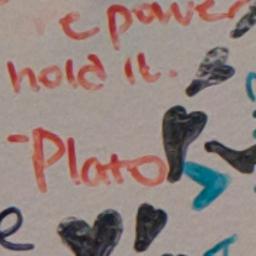 e power
hold it.
-Plato
e